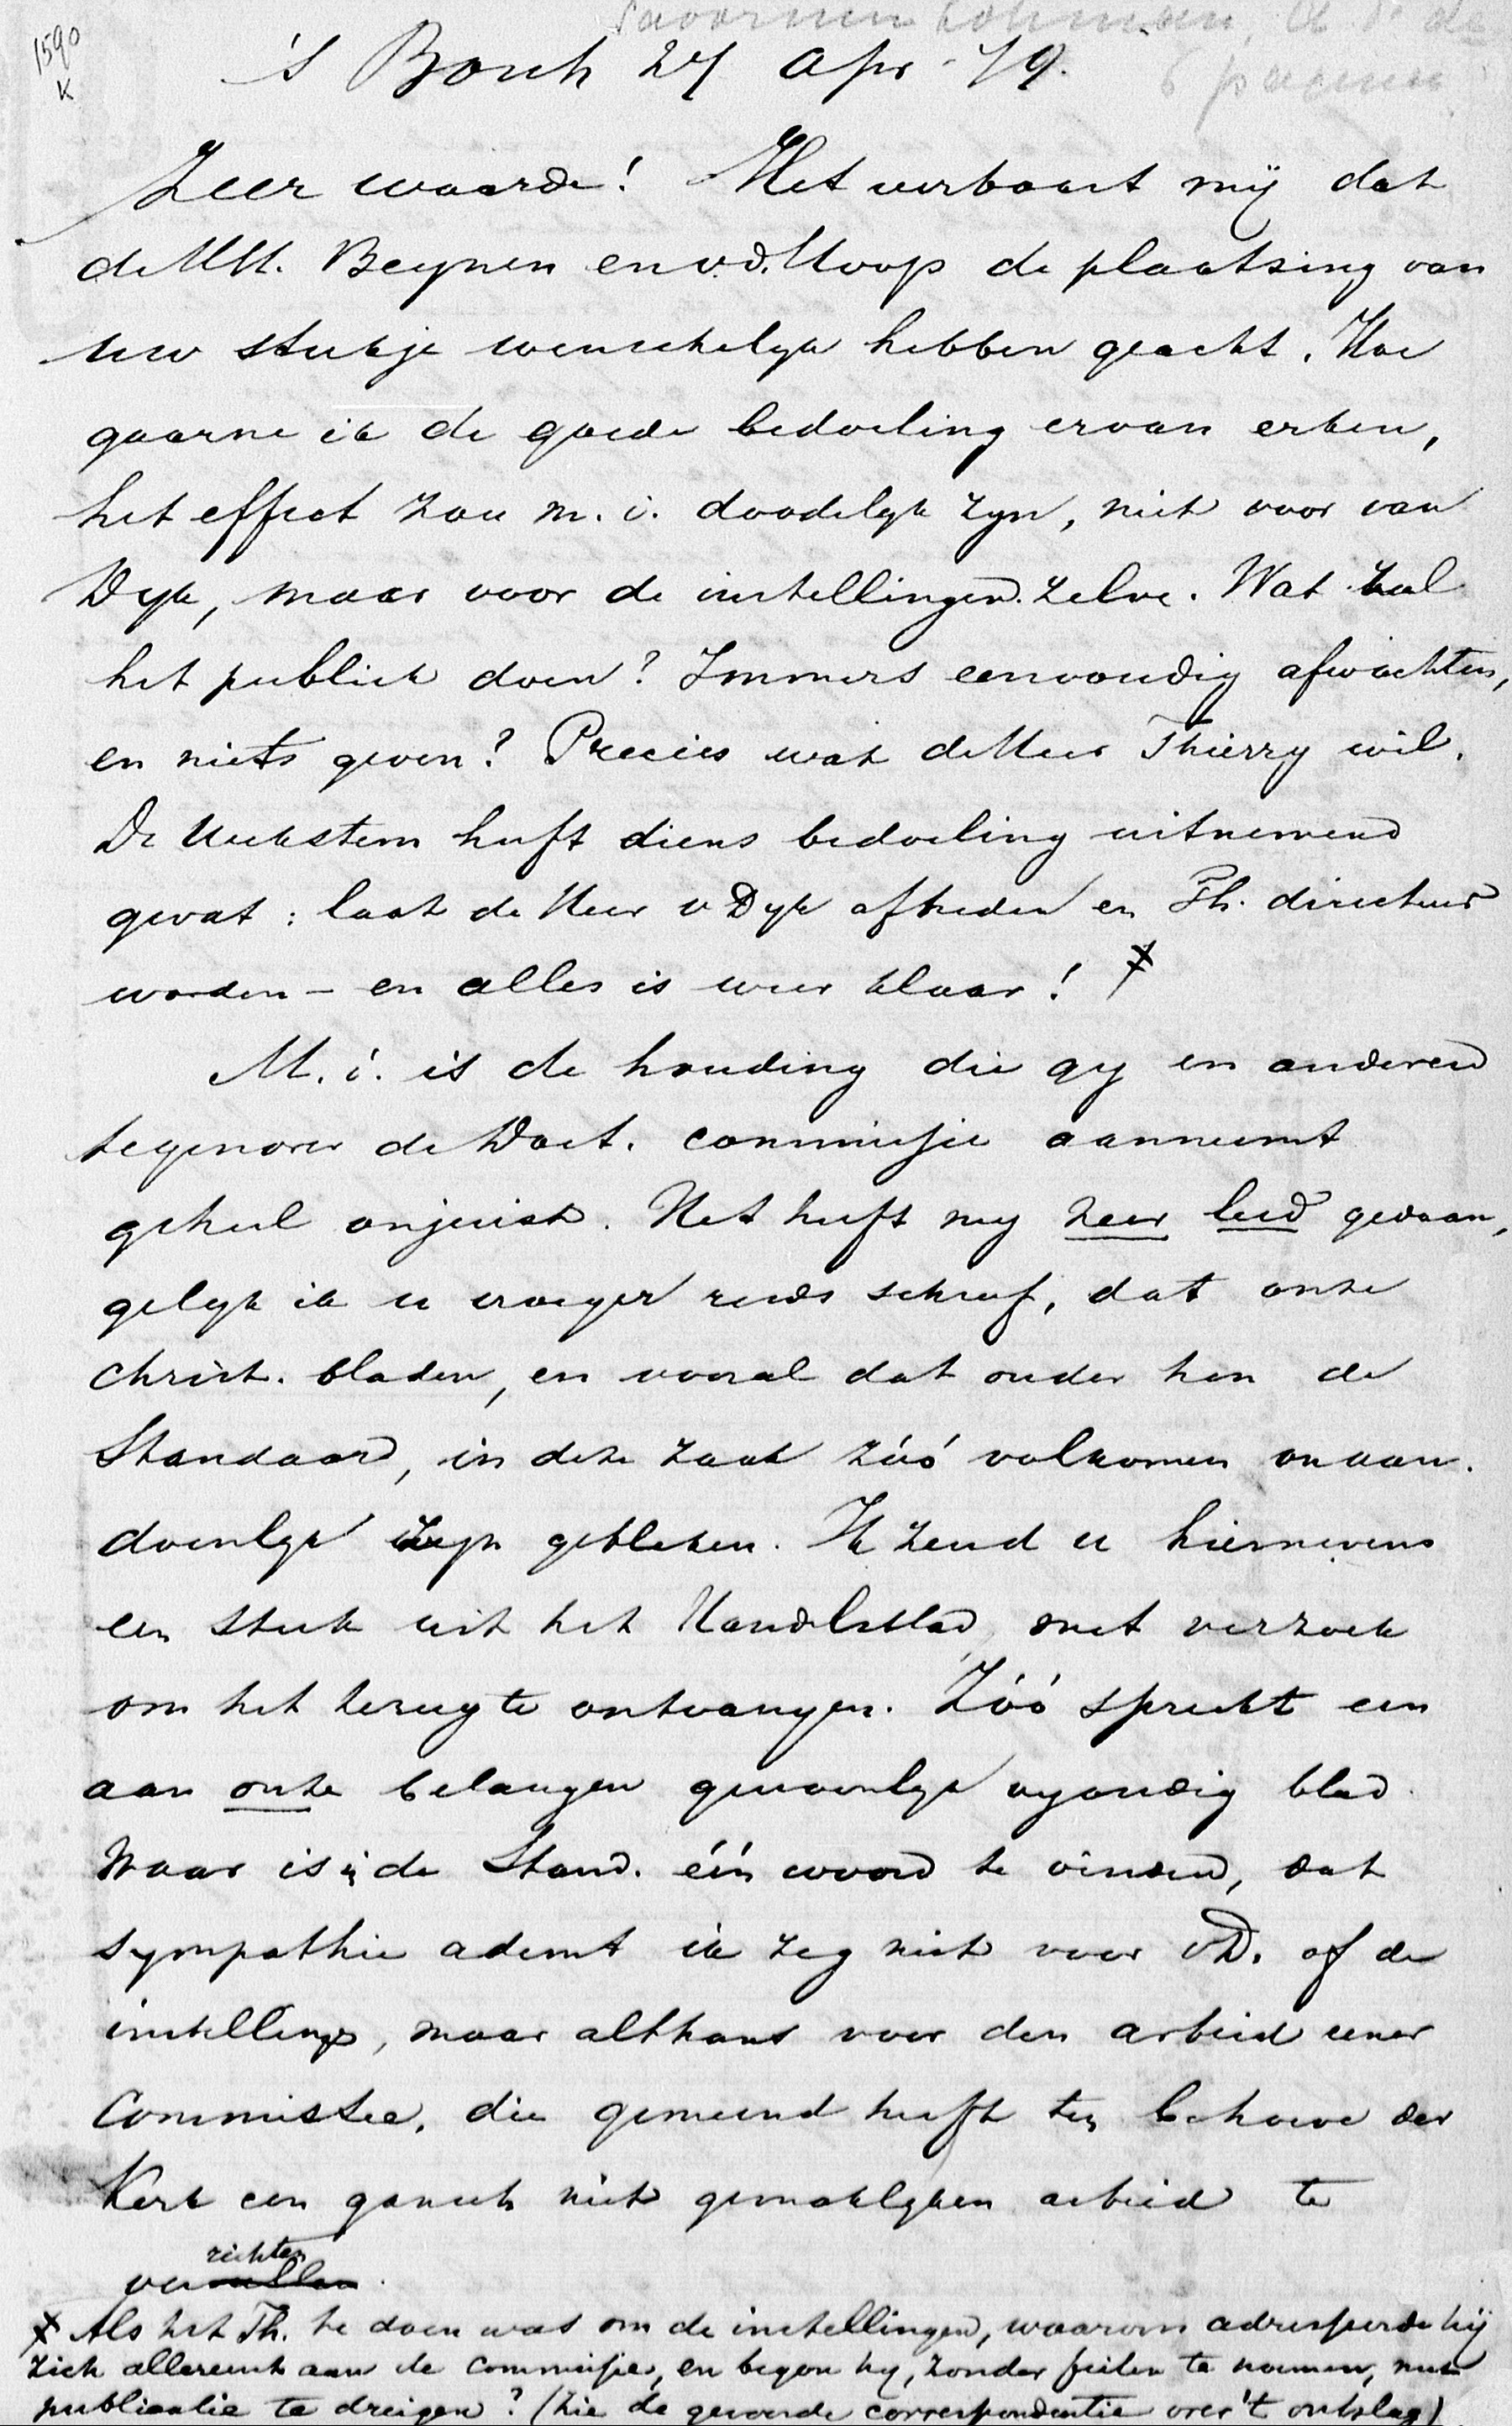 1590
K
Savornin Lohman, A F de
6 pagina's
's Bosch 27 Apr. 79.
Zeer waarde! Het verbaast mij dat
de HH. Beynen en v.d. Hoop de plaatsing van
uw stukje wenschelyk hebben geacht. Hoe
gaarne ik de goede bedoeling ervan erken,
het effect zou m.i. doodelyk zyn, niet voor van
Dyk, maar voor de instellingen zelve. Wat zal
het publiek doen? Immers eenvoudig afwachten,
en niets geven? Precies wat de Heer Thierry wil.
De Heekstem heeft diens bedoeling uitnemend
gevat: laat de Heer v Dyk aftreden en Th. directeur
worden – en alles is weer klaar! ✗
M.i. is de houding die gy en anderen
tegenover de Doet. commissie aanneemt
geheel onjuist. Het heeft my zeer leed gedaan,
gelyk ik u vroeger reeds schreef, dat onze
Christ. bladen, en vooral dat onder hen de
Standaard, in deze zaak zóó volkomen onaan-
doenlyk zyn gebleken. Ik zend u hiernevens
een stuk uit het Handelsblad, met verzoek
om het terug te ontvangen. Zóó spreekt een
aan onze belangen gewoonlyk vyandig blad.
Waar is in de Stand. één woord te vinden, dat
sympathie ademt ik zeg niet voor vD. of de
instellingn, maar althans voor den arbeid eener
Commissie, die gemeend heeft ten behoeve der
Kerk een gansch niet gemaklyken arbeid te
richten
vervullen.
✗ Als het Th. te doen was om de instellingen, waarom adresseerde hij
zich allereerst aan de commissie, en begon hy, zonder feiten te noemen, met
publicatie te dreigen? (zie de gevoerde correspondentie over 't ontslag)